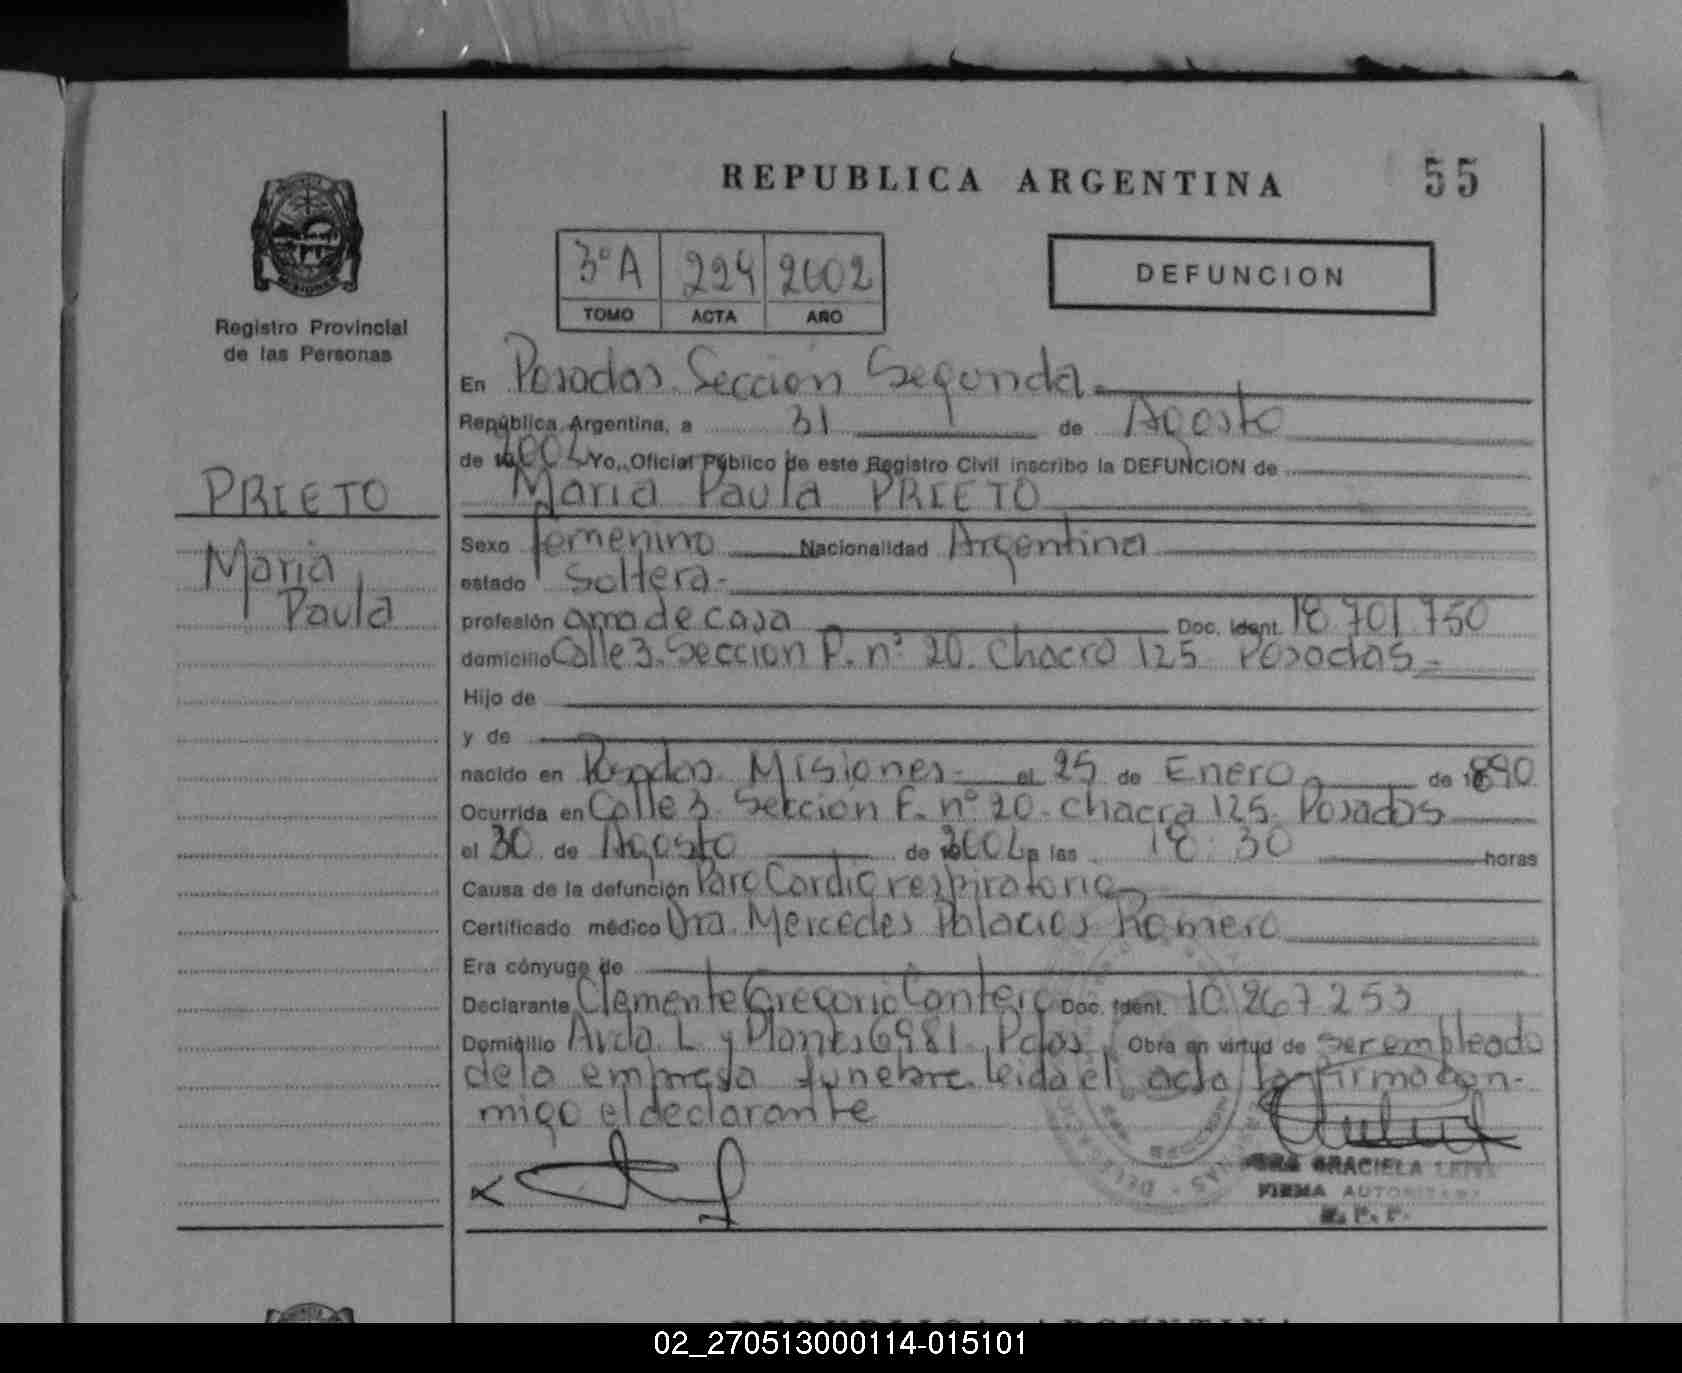 REPUBLICA ARGENTINA
55
Registro Provincial
de las Personas
3ºA 224 2002
TOMO ACTA AÑO
DEFUNCION
PRIETO
Maria
Paula
En Posadas. Sección Segunda.
República Argentina, a 31 de Agosto
de 2002 Yo, Oficial Público de este Registro Civil inscribo la DEFUNCION de
Maria Paula PRIETO
Sexo femenino Nacionalidad Argentina
estado Soltera.
profesión ama de casa Doc. Ident. 18.701.750
domicilio Calle 3. Sección P. nº 20. Chacra 125 Posadas.
Hijo de
y de
nacido en Posadas. Misiones. el 25 de Enero de 1890
Ocurrida en Calle 3. Sección F. nº 20. chacra 125. Posadas
el 30 de Agosto de 2002 a las 18:30 horas
Causa de la defunción Paro Cardio respiratorio
Certificado médico Dra. Mercedes Palacios Romero
Era cónyuge de
Declarante Clemente Gregorio Cantero Doc. Ident. 10.267.253
Domicilio Avda. L. y Planes 6981. Pdas. Obra en virtud de ser empleado
de la empresa funebre. leida el acta la firma con-
migo el declarante
GRACIELA
FIRMA AUTORIZADA
R. P. P.
REPUBLICA ARGENTINA
02_270513000114-015101